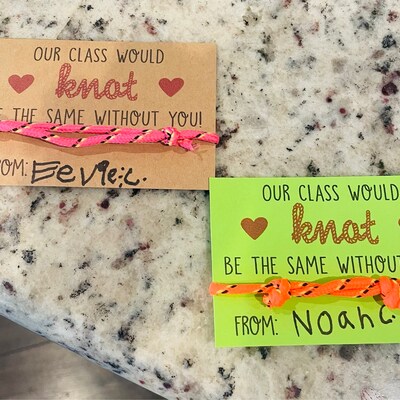 OUR CLASS WOULD
knot
E THE SAME WITHOUT YOU!
OM: Eevie C.
OUR CLASS WOULD
knot
BE THE SAME WITHOUT
FROM: Noah C